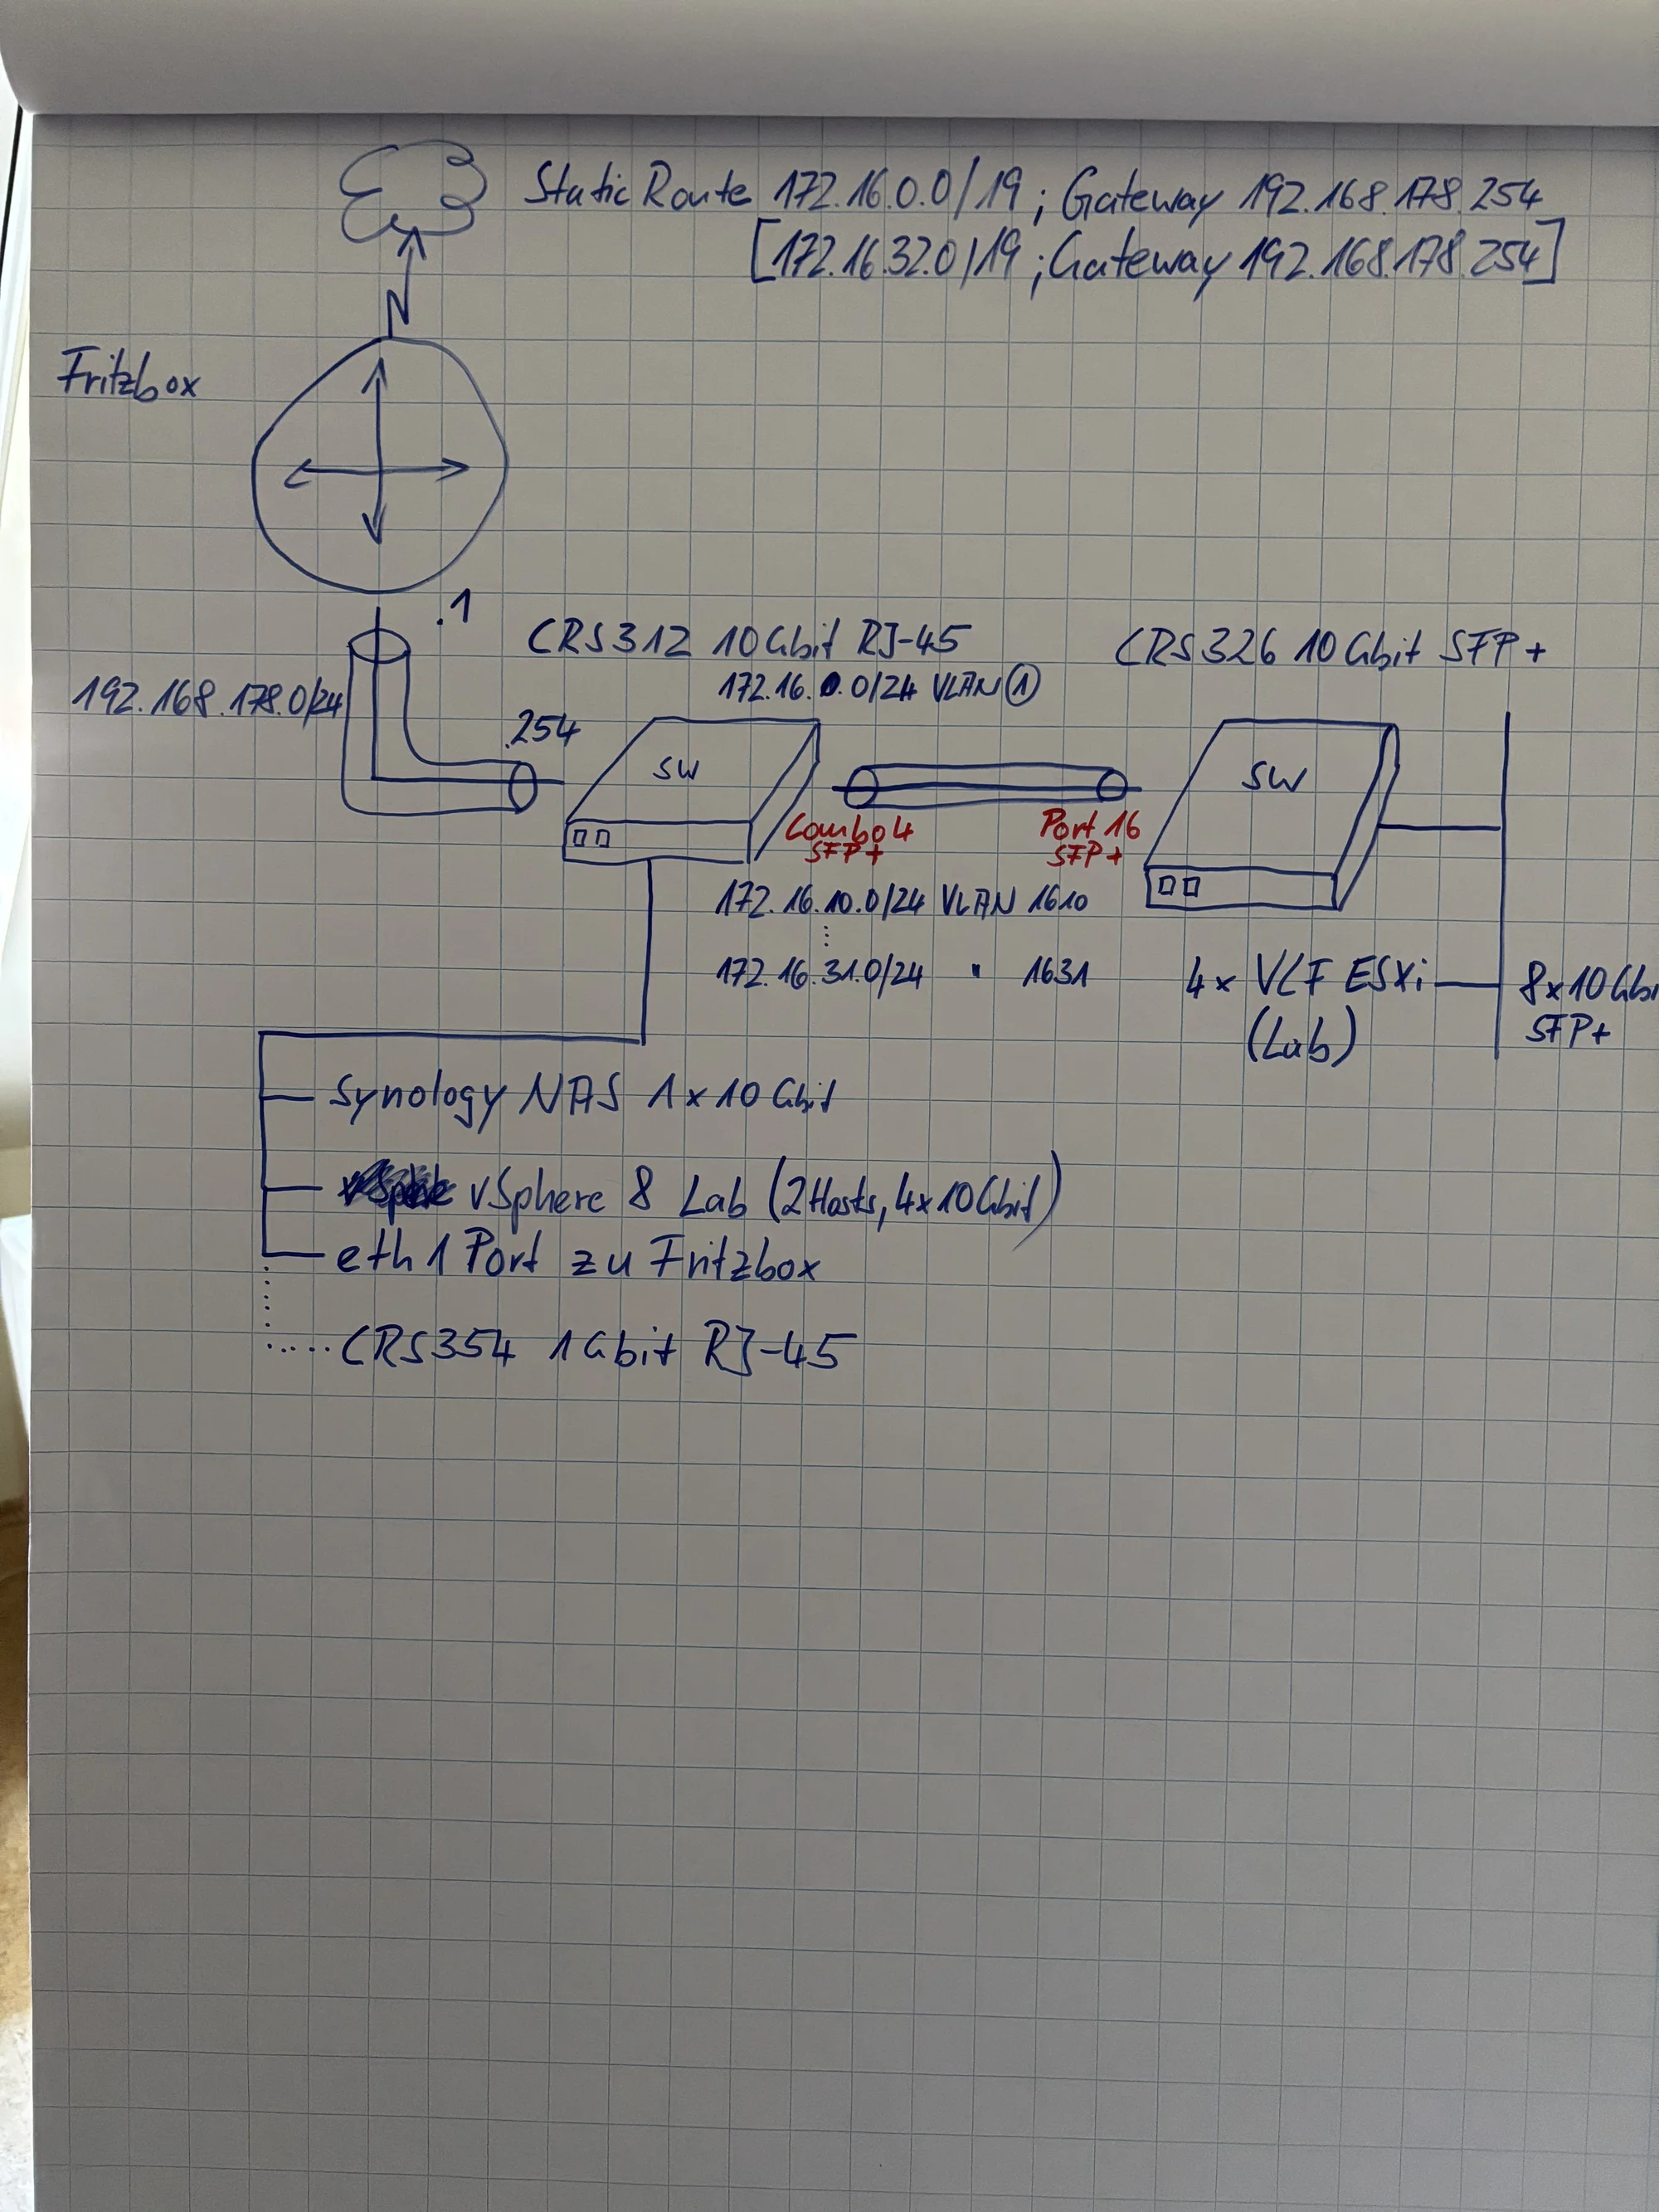 Static Route 172.16.0.0/19 ; Gateway 192.168.178.254
[172.16.32.0/19 ; Gateway 192.168.178.254]
Fritzbox
.1
CRS312 10Gbit RJ-45
CRS326 10Gbit SFP+
172.16.0.0/24 VLAN 1
192.168.178.0/24
.254
SW
SW
Combo4
SFP+
Port 16
SFP+
172.16.10.0/24 VLAN 1610
172.16.31.0/24 " 1631
4x VCF ESXi
(Lab)
8x10Gbi
SFP+
Synology NAS 1x10Gbit
vSphere 8 Lab (2Hosts, 4x10Gbit)
eth1 Port zu Fritzbox
CRS354 1Gbit RJ-45